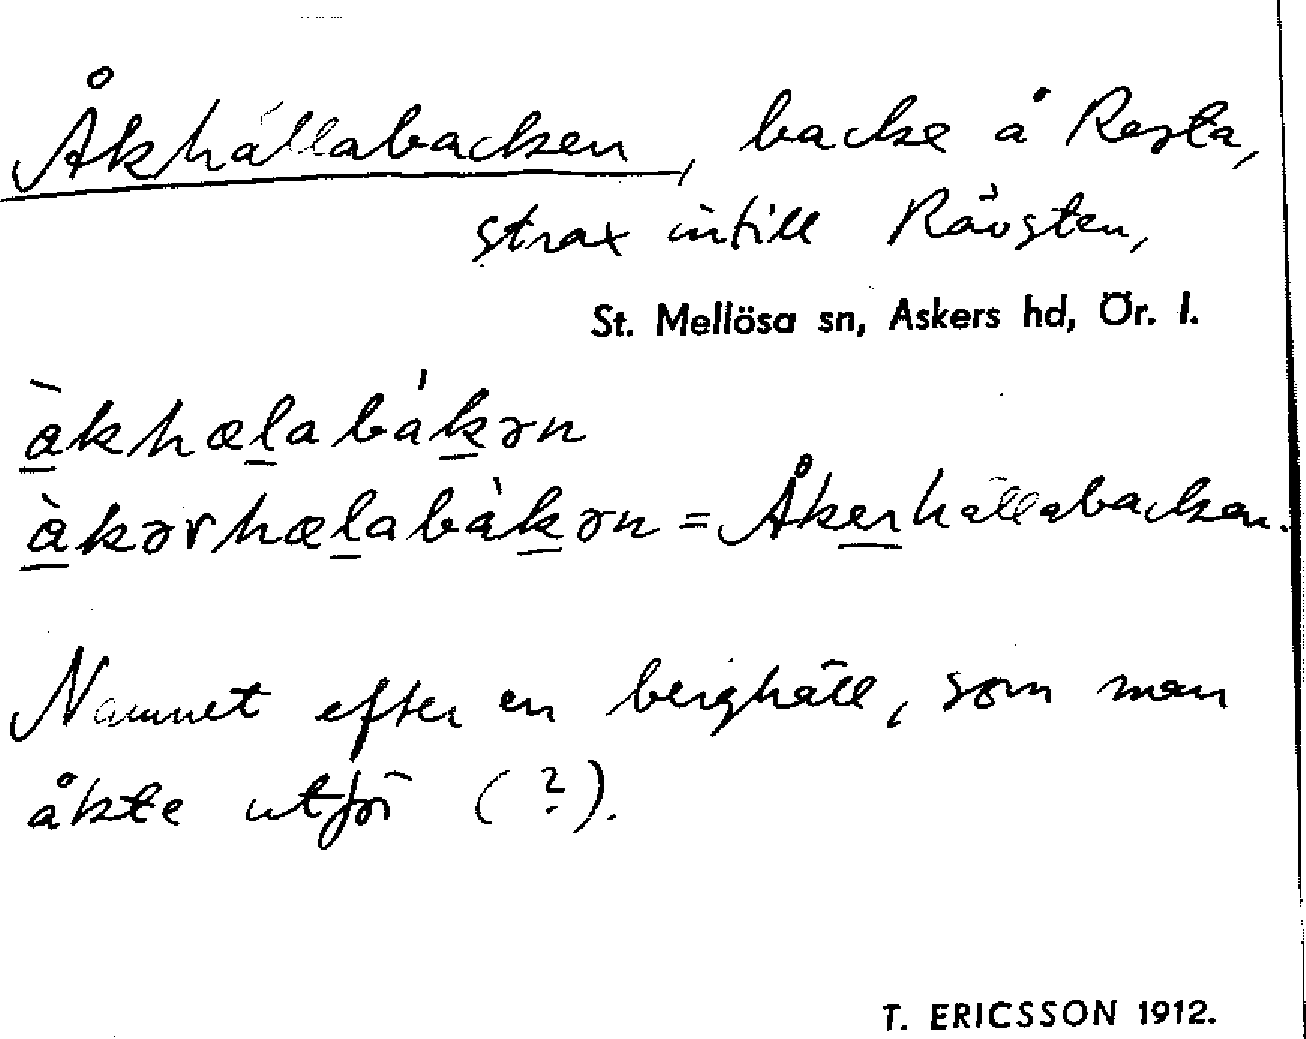 Åkhällabacken, backe å Resta,
strax intill Rävsten,
St. Mellösa sn, Askers hd, Ör. l.
àkhælabákən
àkərhælabàkən = Åkerhällabacken.
Namnet efter en berghäll, som man
åkte utför (?).
T. ERICSSON 1912.